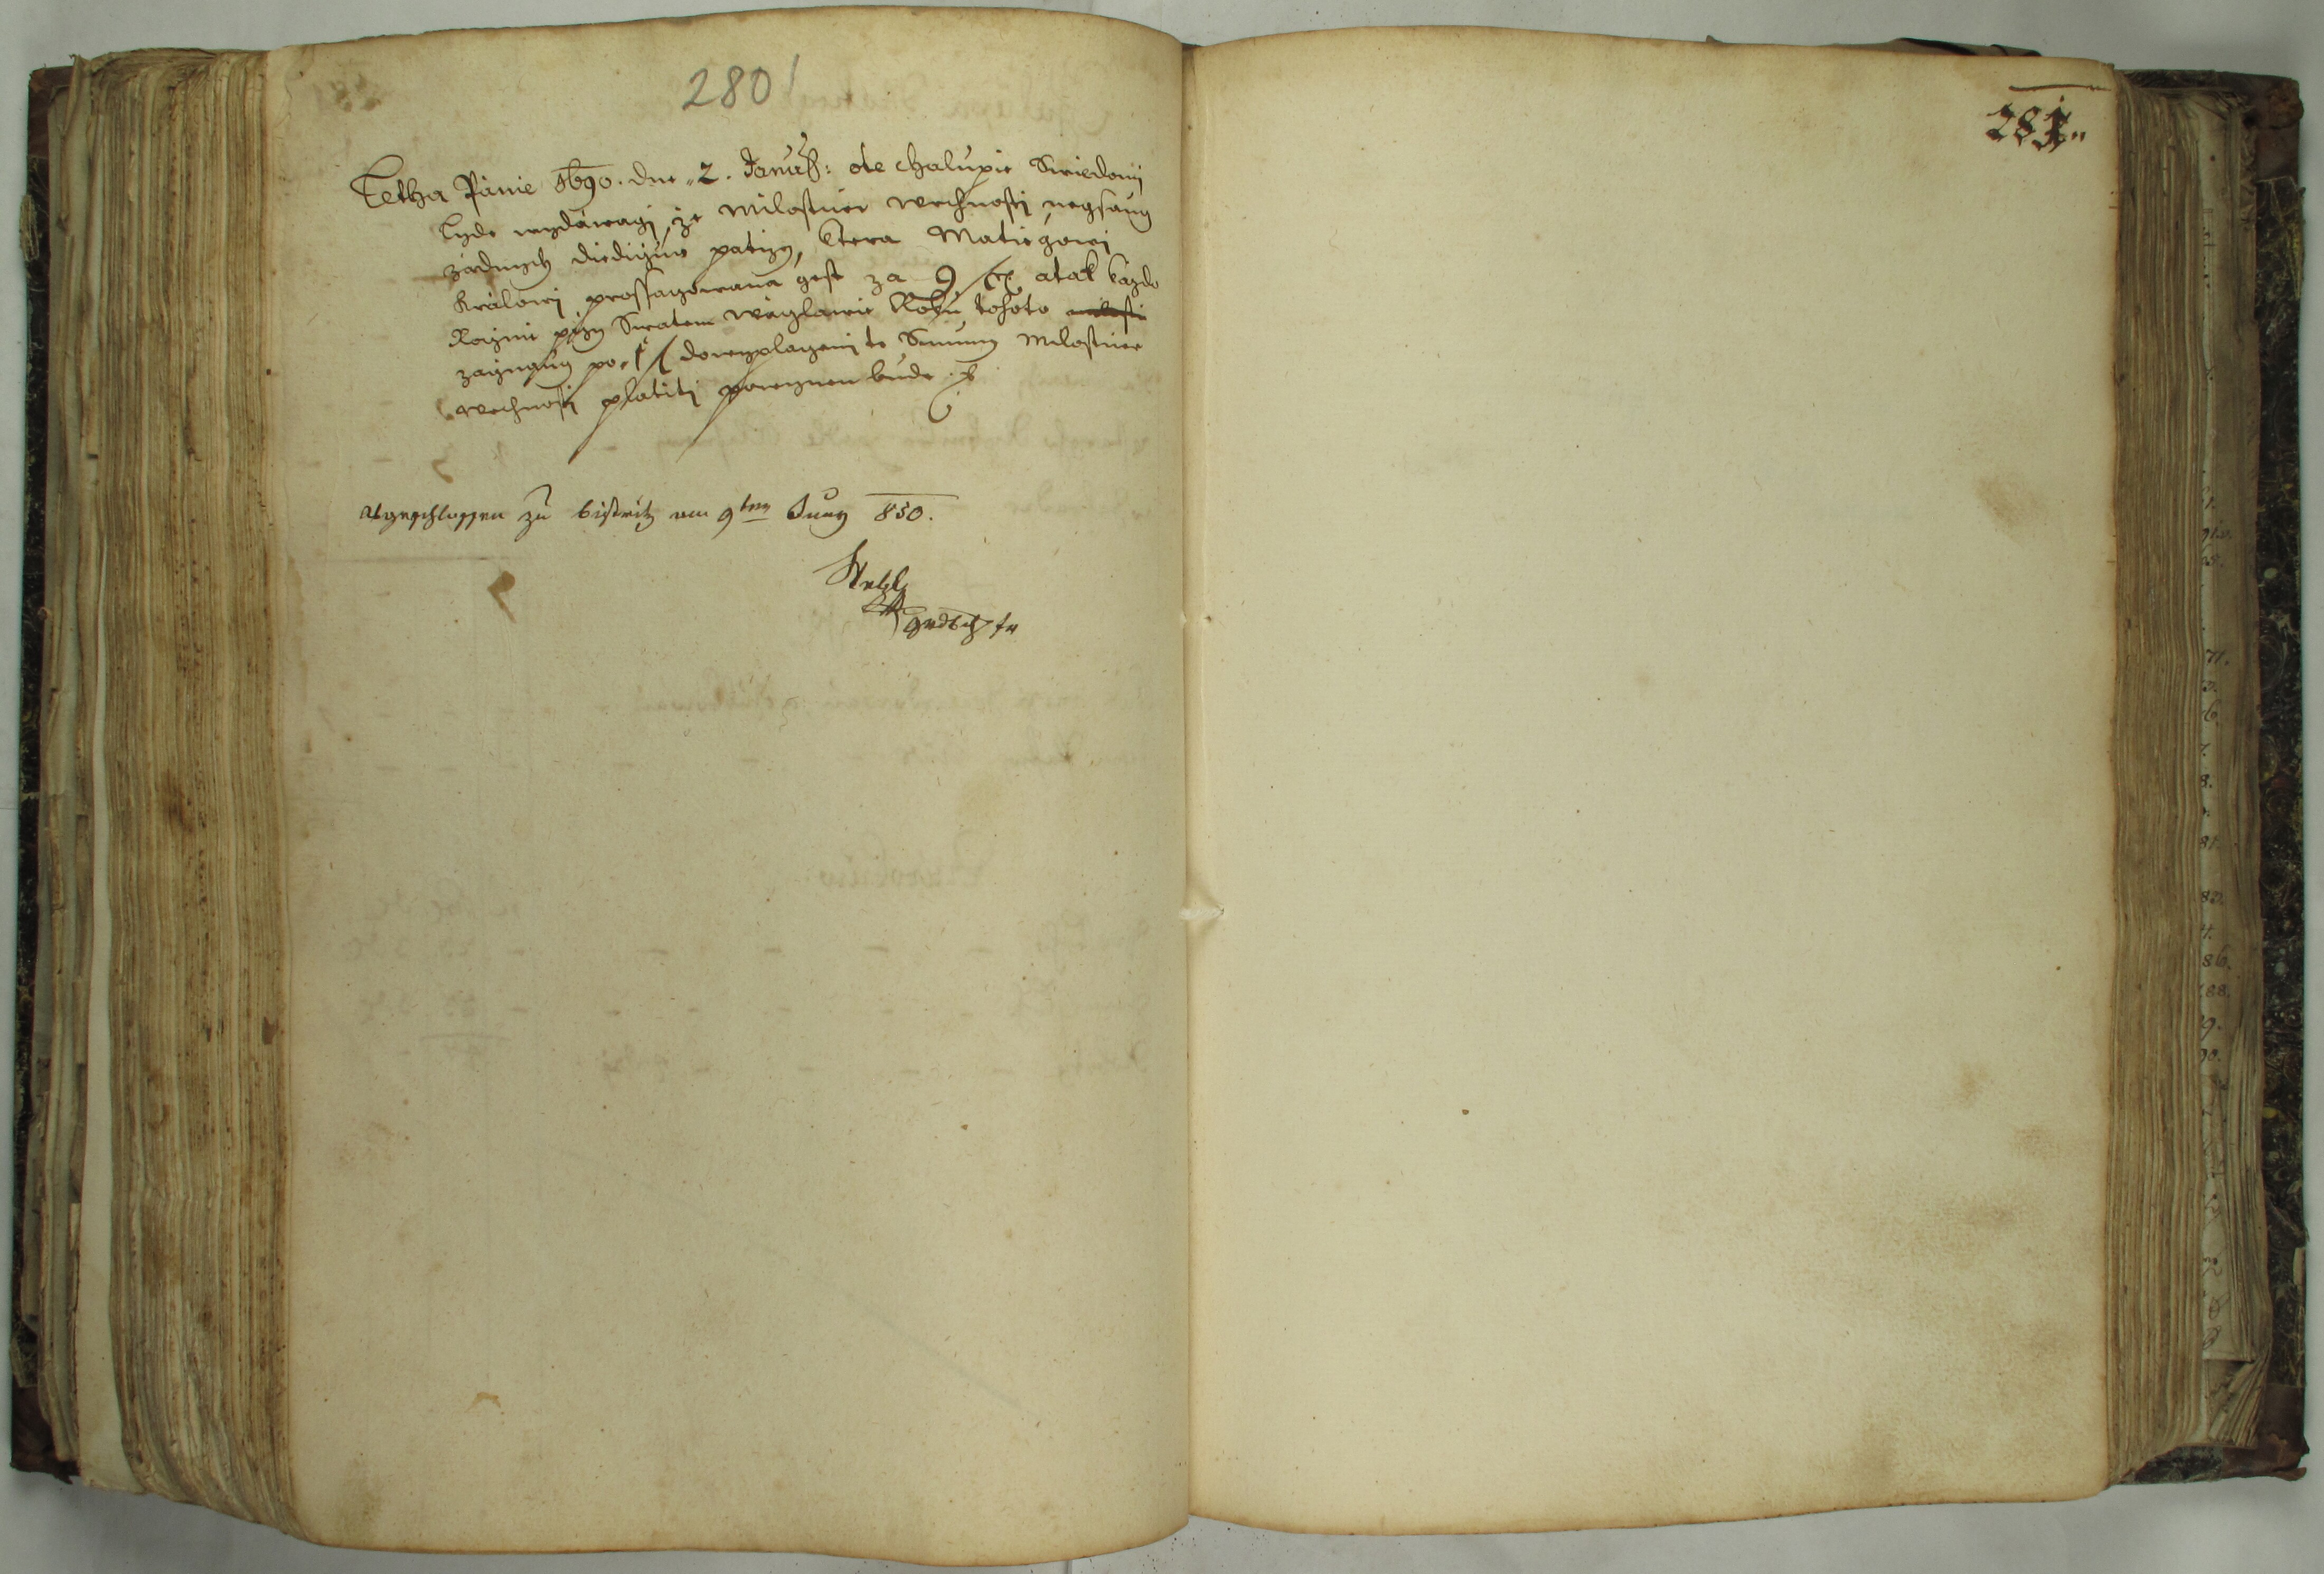 280
Letha Pánie 1690. dne 2. Januarÿ: ote chalupie Swiedomj
Lyde wydáwagj, že Milostiwe wrchnosti negsaucy
žádnych diediczuw patrzy, ktera Matiegowi
Kralowi prossaczowana gest za 9 atak každo
Rocznie przy Swatem Waczlawie Roku tohoto
zacznaucz po 1 dowyplaczenj te Summy Milostiwe
wrchnosti platiti powinen bude
Abgeschlossen zu Bistritz am 9ten Juny 850.
281